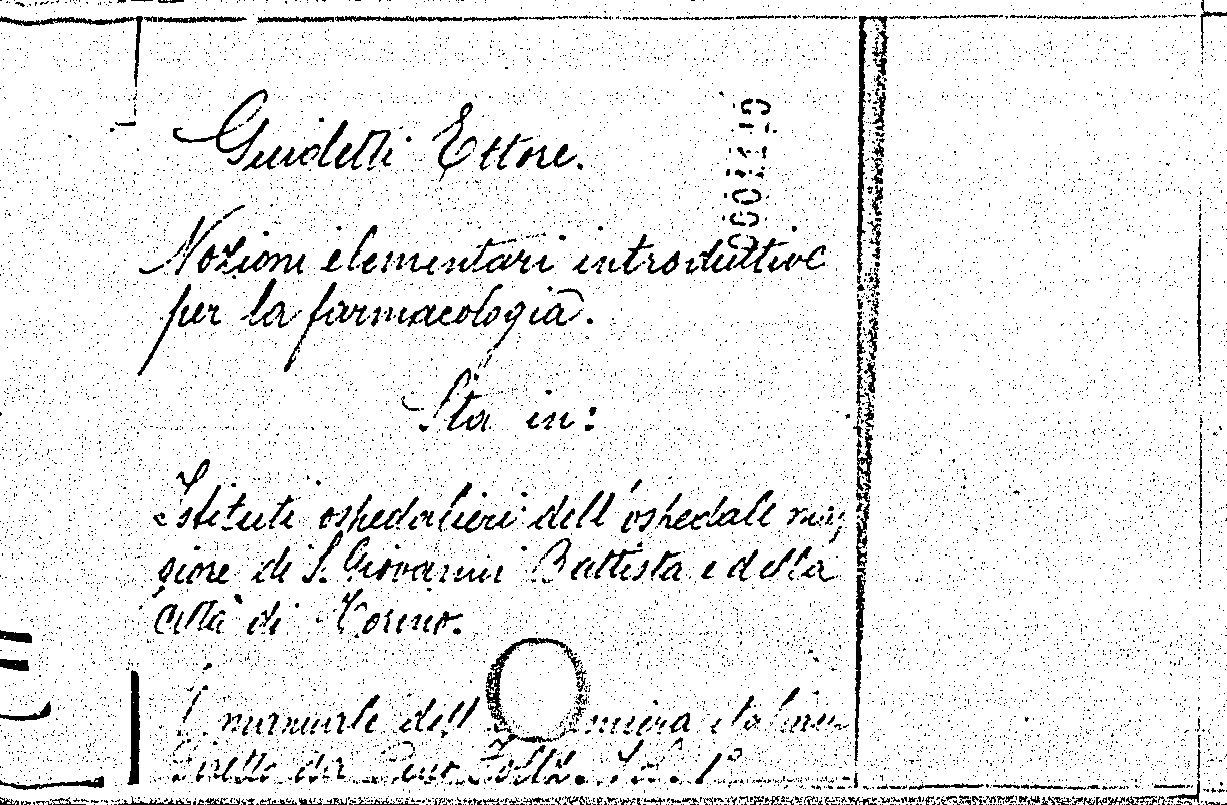 Guidetti Ettore.
Nozioni elementari introduttive
per la farmacologia.
Sta in:
Istituti ospedalieri dell'ospedale mag
giore di S. Giovanni Battista e della
città di Torino.
manuale dell
diretto da
0001119